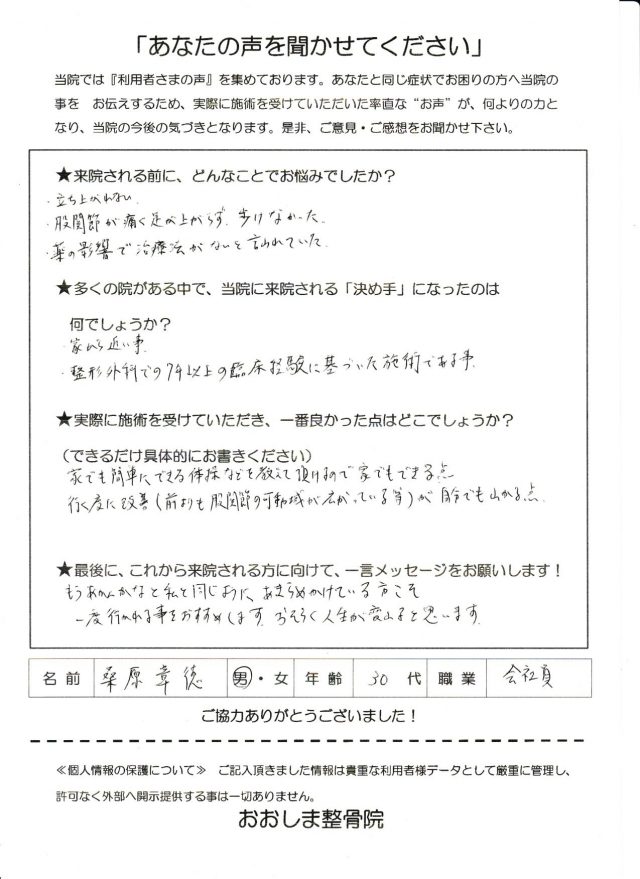 「あなたの声を聞かせてください」
当院では『利用者さまの声』を集めております。あなたと同じ症状でお困りの方へ当院の
事を　お伝えするため、実際に施術を受けていただいた率直な“お声”が、何よりの力と
なり、当院の今後の気づきとなります。是非、ご意見・ご感想をお聞かせ下さい。
★来院される前に、どんなことでお悩みでしたか？
・立ち上がれない
・股関節が痛く足が上がらず、歩けなかった
・薬の影響で治療法がないと言われていた
★多くの院がある中で、当院に来院される「決め手」になったのは
何でしょうか？
・家から近い事
・整形外科での7年以上の臨床経験に基づいた施術である事
★実際に施術を受けていただき、一番良かった点はどこでしょうか？
（できるだけ具体的にお書きください）
家でも簡単にできる体操などを教えて頂けるので家でもできる点
行く度に改善（前よりも股関節の可動域が広がっている等）が自分でも分かる点
★最後に、これから来院される方に向けて、一言メッセージをお願いします！
もうあかんかなと私と同じように、あきらめかけている方こそ
一度行かれる事をおすすめします。おそらく人生が変わると思います。
名前 桑原章徳 男・女 年齢 30代 職業 会社員
ご協力ありがとうございました！
≪個人情報の保護について≫　ご記入頂きました情報は貴重な利用者様データとして厳重に管理し、
許可なく外部へ開示提供する事は一切ありません。
おおしま整骨院